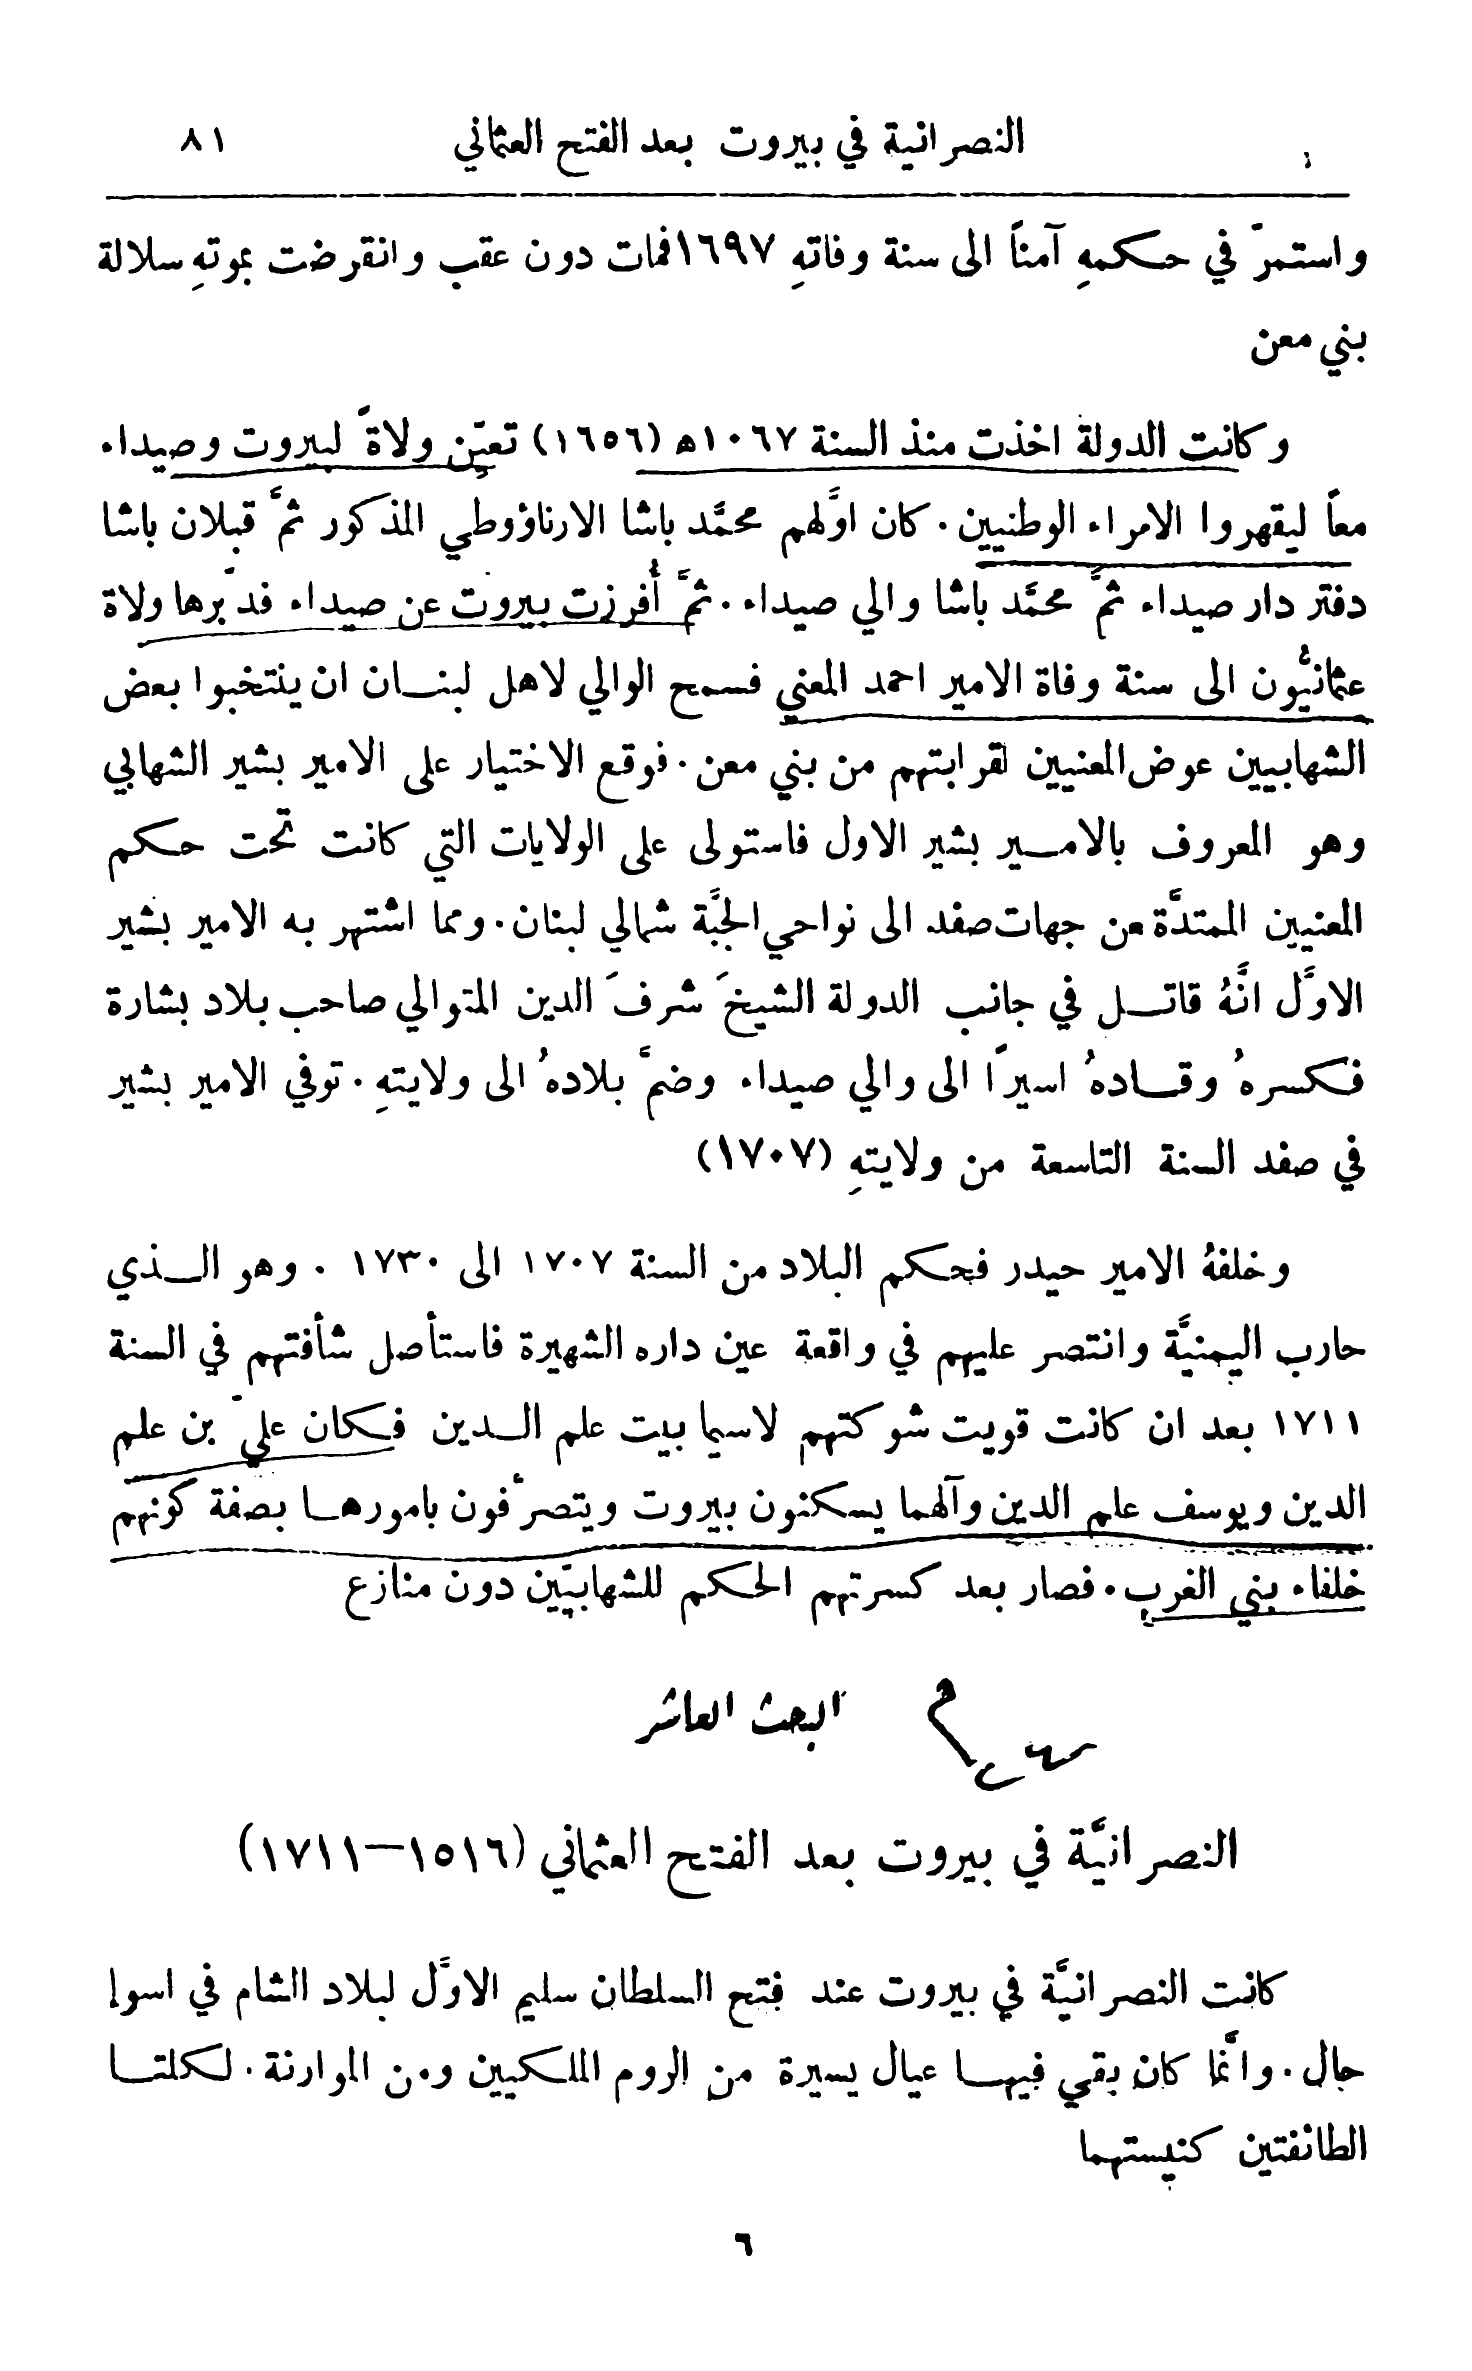 النصرانية في بيروت بعد الفتح العثاني ٨١
واستمرّ في حكمهِ آمناً الى سنة وفاتهِ ١٦٩٧ فمات دون عقب وانقرضت بموتهِ سلالة
بني معن
وكانت الدولة اخذت منذ السنة ١٠٦٧ﻫ (١٦٥٦) تعيّن ولاةً لبيروت وصيداء
معاً ليقهروا الامراء الوطنيين. كان اوَّلهم محمَّد باشا الارناؤوطي المذكور ثمَّ قبلان باشا
دفتر دار صيداء ثمَّ محمَّد باشا والي صيداء. ثمَّ أُفرزت بيروت عن صيداء فدبَّرها ولاة
عثمانيُّون الى سنة وفاة الامير احمد المعني فسمح الوالي لاهل لبنان ان ينتخبوا بعض
الشهابيين عوض المعنيين لقرابتهم من بني معن. فوقع الاختيار على الامير بشير الشهابي
وهو المعروف بالامير بشير الاول فاستولى على الولايات التي كانت تحت حكم
المعنيين الممتدَّة من جهات صفد الى نواحي الجبَّة شمالي لبنان. ومما اشتهر به الامير بشير
الاوَّل انَّهُ قاتل في جانب الدولة الشيخَ شرفَ الدين المتوالي صاحب بلاد بشارة
فكسرهُ وقادهُ اسيرًا الى والي صيداء وضمَّ بلادهُ الى ولايتهِ. توفي الامير بشير
في صفد السنة التاسعة من ولايتهِ (١٧٠٧)
وخلفهُ الامير حيدر فحكم البلاد من السنة ١٧٠٧ الى ١٧٣٠. وهو الذي
حارب اليمنيَّة وانتصر عليهم في واقعة عين داره الشهيرة فاستأصل شأفتهم في السنة
١٧١١ بعد ان كانت قويت شوكتهم لاسيما بيت علم الدين فكان عليّ بن علم
الدين ويوسف علم الدين وآلهما يسكنون بيروت ويتصرَّفون بامورها بصفة كونهم
خلفاء بني الغرب. فصار بعد كسرتهم الحكم للشهابيّين دون منازع
البحث العاشر
النصرانيَّة في بيروت بعد الفتح العثماني (١٥١٦–١٧١١)
كانت النصرانيَّة في بيروت عند فتح السلطان سليم الاوَّل لبلاد الشام في اسوإ
حال. وانَّما كان بقي فيها عيال يسيرة من الروم الملكيين ومن الموارنة. لكلتا
الطائفتين كنيستهما
٦